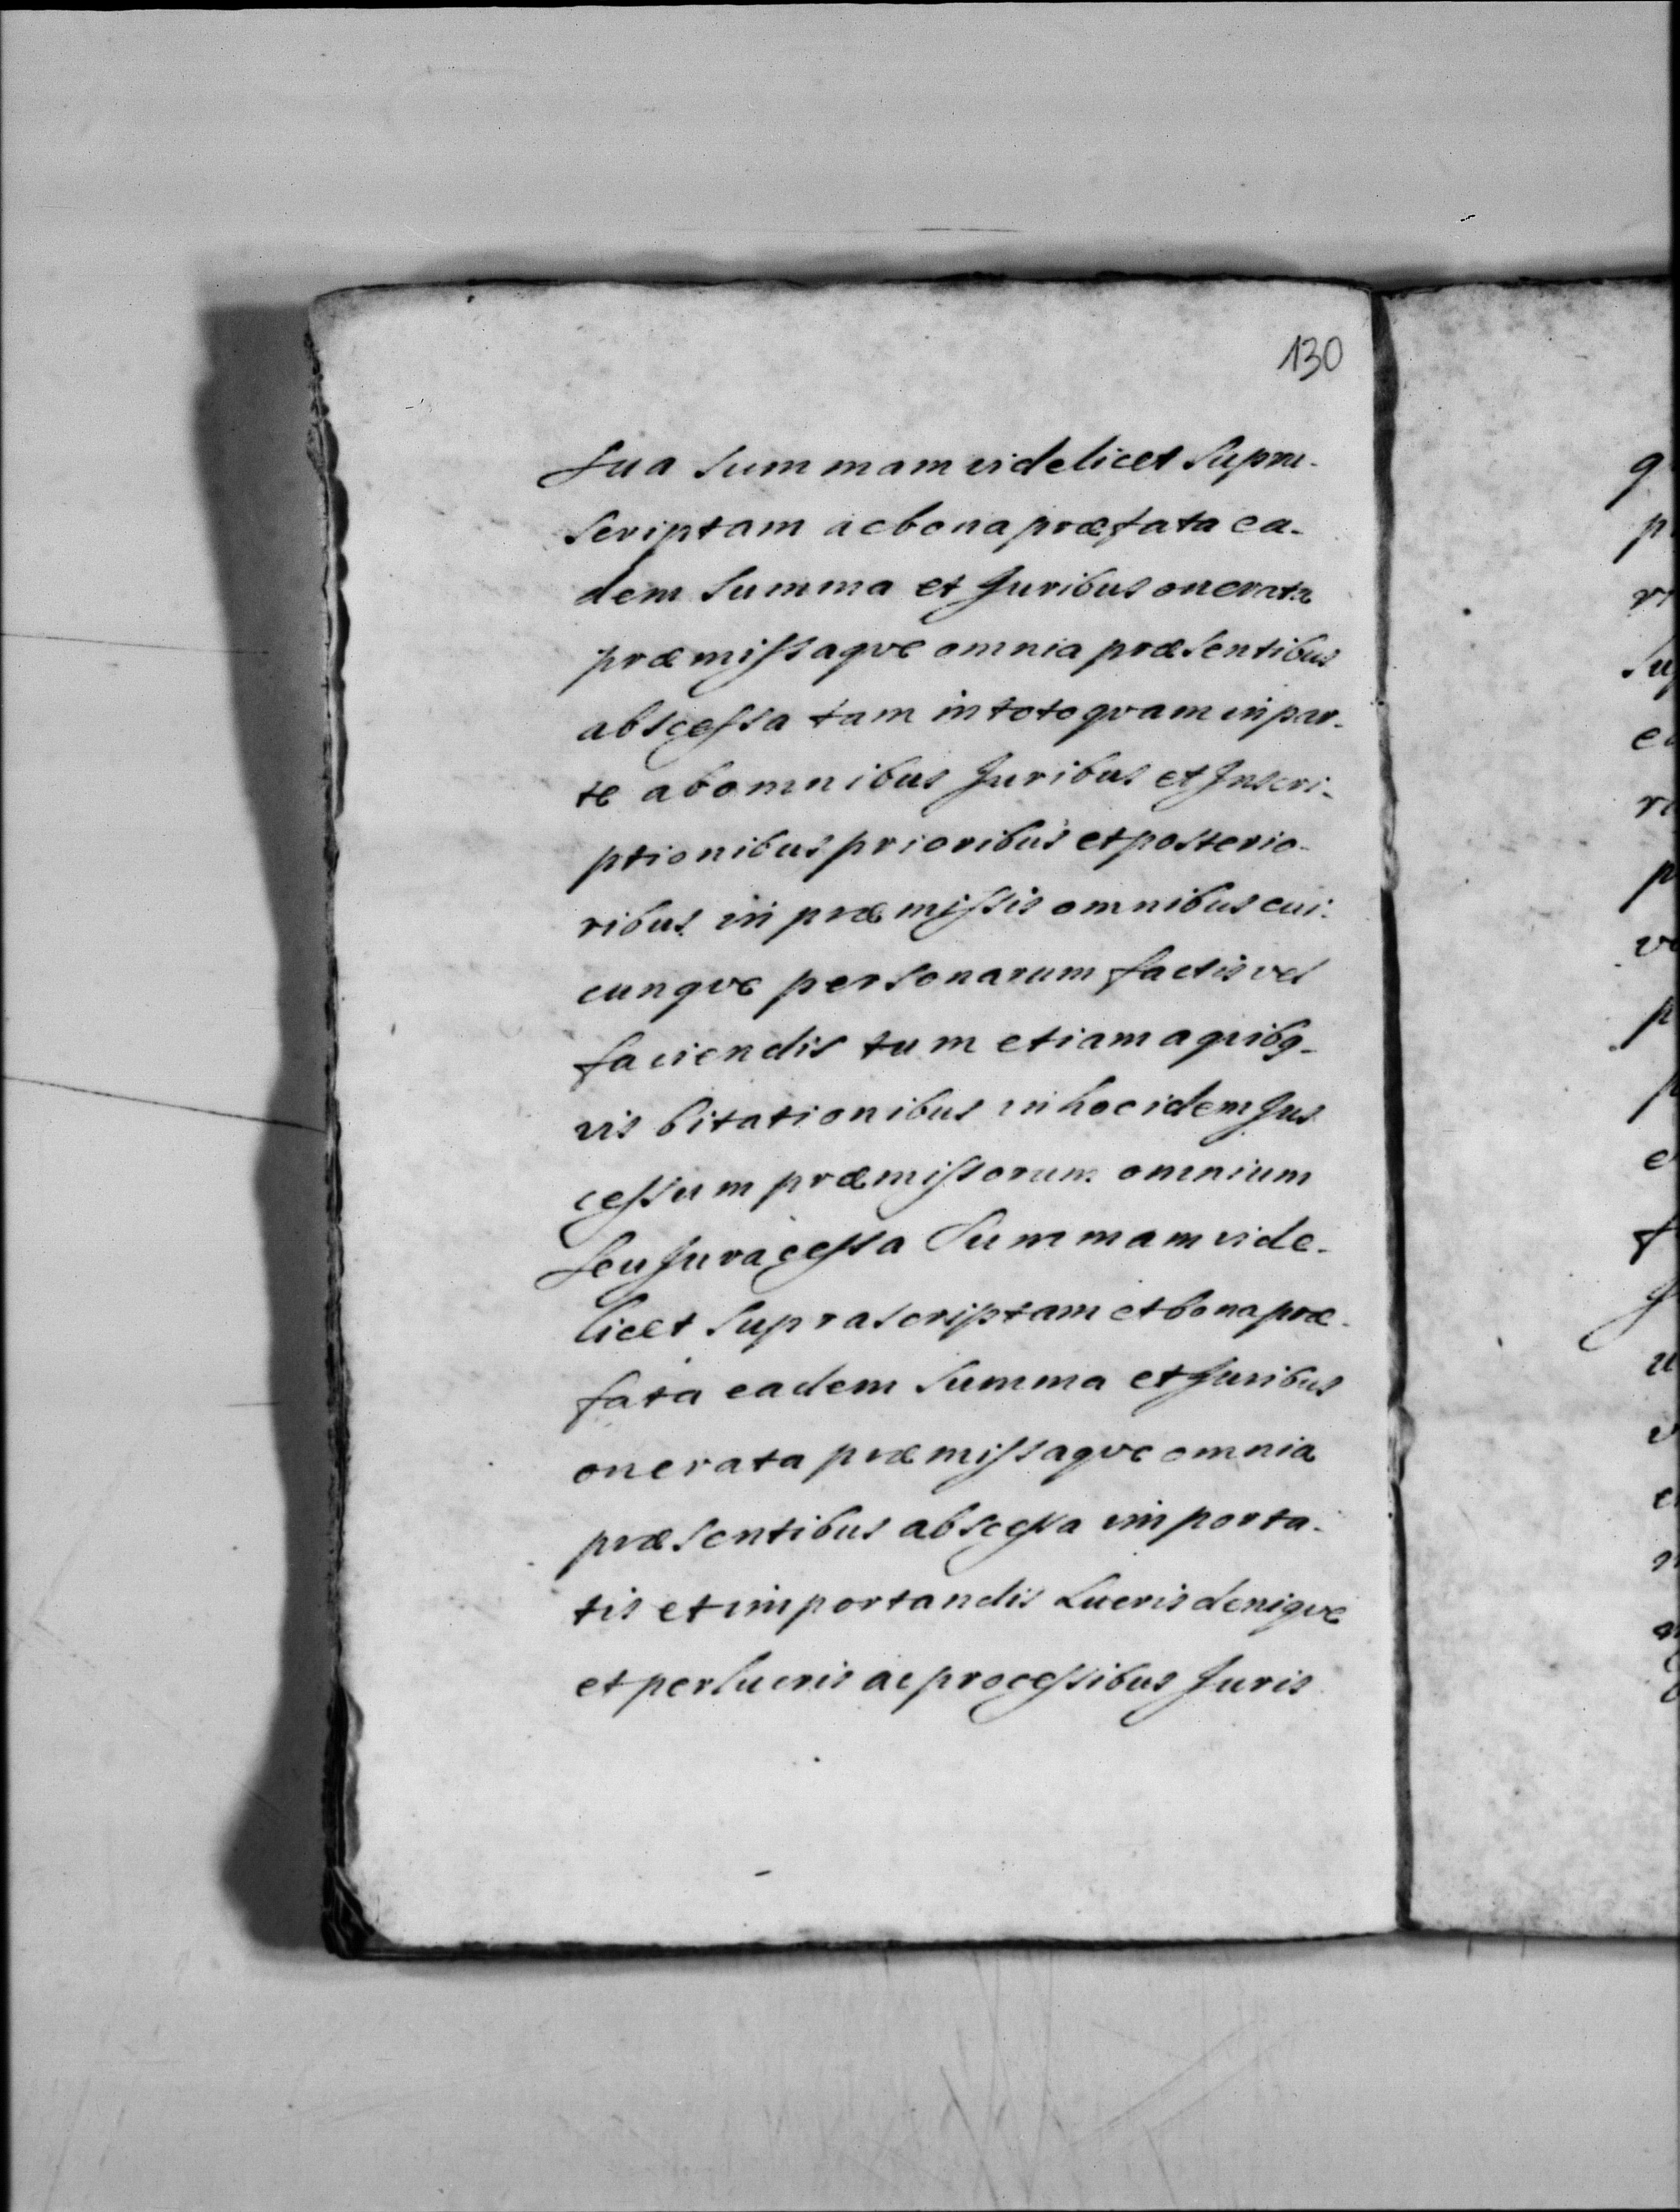 130
Sua Summam videlicet Supra-
Scriptam ac bona præfata ea-
dem Summa et Juribus onerata
præmissaqve omnia præsentibus
abscessa tam in toto qvam in par-
te ab omnibus Juribus et Inscri-
ptionibus prioribus et posterio-
ribus in præmissis omnibus cui-
cunqve personarum factis vel
faciendis tum etiam a qvibg-
vis bitationibus in hoc idem Jus
cessum præmissorum omnium
Seu Jura cessa Summam vide-
licet Suprascriptam et bona præ-
fata eadem Summa et Juribus
onerata præmissaqve omnia
præsentibus abscessa importa-
tis et importandis Lucris deniqve
et perlucris ac processibus Juris